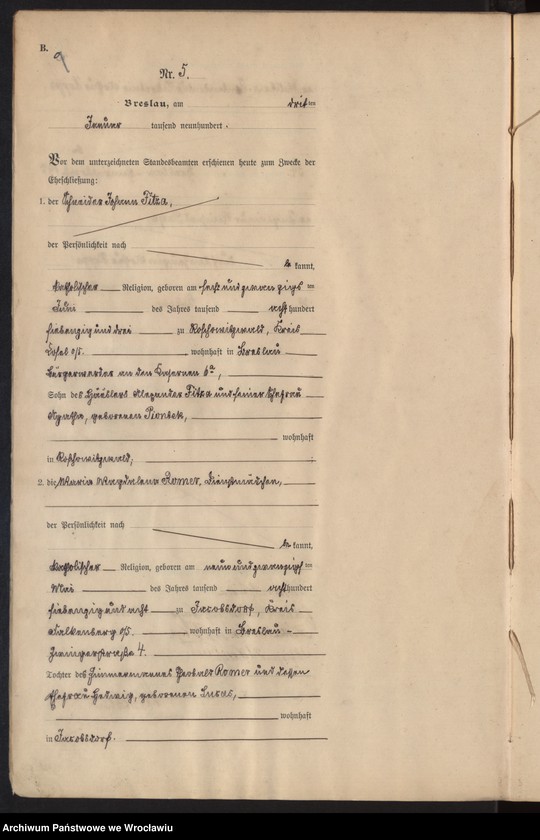 B.
9
Nr. 5.
Breslau, am dritten
Januar tausend neunhundert.
Vor dem unterzeichneten Standesbeamten erschienen heute zum Zwecke der
Eheschließung:
1. der Schneider Johann Titza,
der Persönlichkeit nach
be kannt,
katholischer Religion, geboren am sechsundzwanzigsten
Juni des Jahres tausend acht hundert
siebenzig und drei zu Roschowitzwald, Kreis
Cosel o/s. wohnhaft in Breslau
Bürgerwerder an den Kasernen 6a,
Sohn des Häuslers Alexander Titza und seiner Ehefrau
Agatha, geborenen Piontek,
wohnhaft
in Roschowitzwald,
2. die Maria Magdalena Romer, Dienstmädchen,
der Persönlichkeit nach
be kannt,
katholischer Religion, geboren am neunundzwanzigsten
Mai des Jahres tausend acht hundert
siebenzig und acht zu Jacobsdorf, Kreis
Falkenberg o/s. wohnhaft in Breslau -
Zwingerstraße 4.
Tochter des Zimmermannes Romer und dessen
Ehefrau Hedwig, geborenen Lukas,
wohnhaft
in Jacobsdorf.
Archiwum Państwowe we Wrocławiu